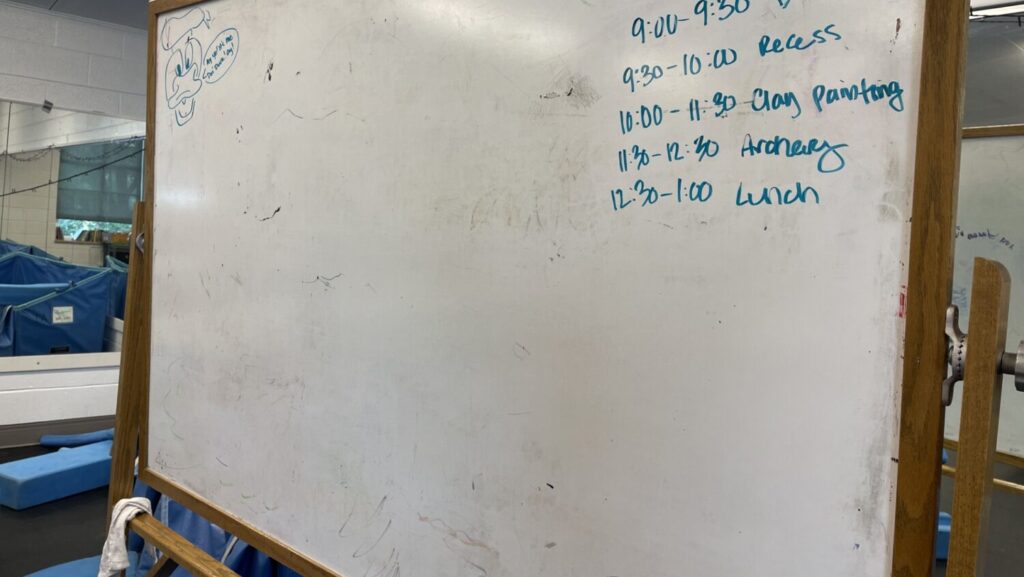 9:00-9:30
9:30-10:00 Recess
10:00-11:30 Clay Painting
11:30-12:30 Archery
12:30-1:00 Lunch